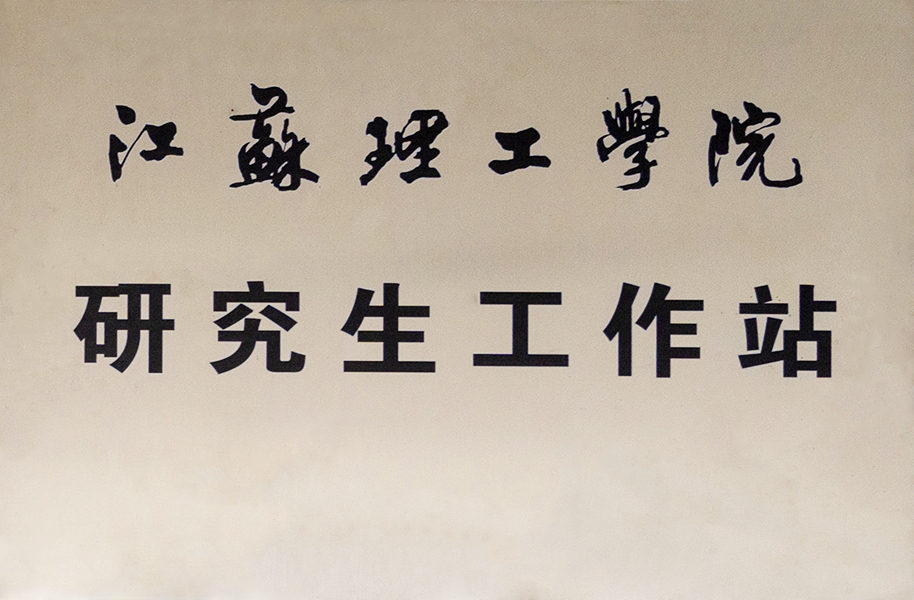 江蘇理工學院
研究生工作站